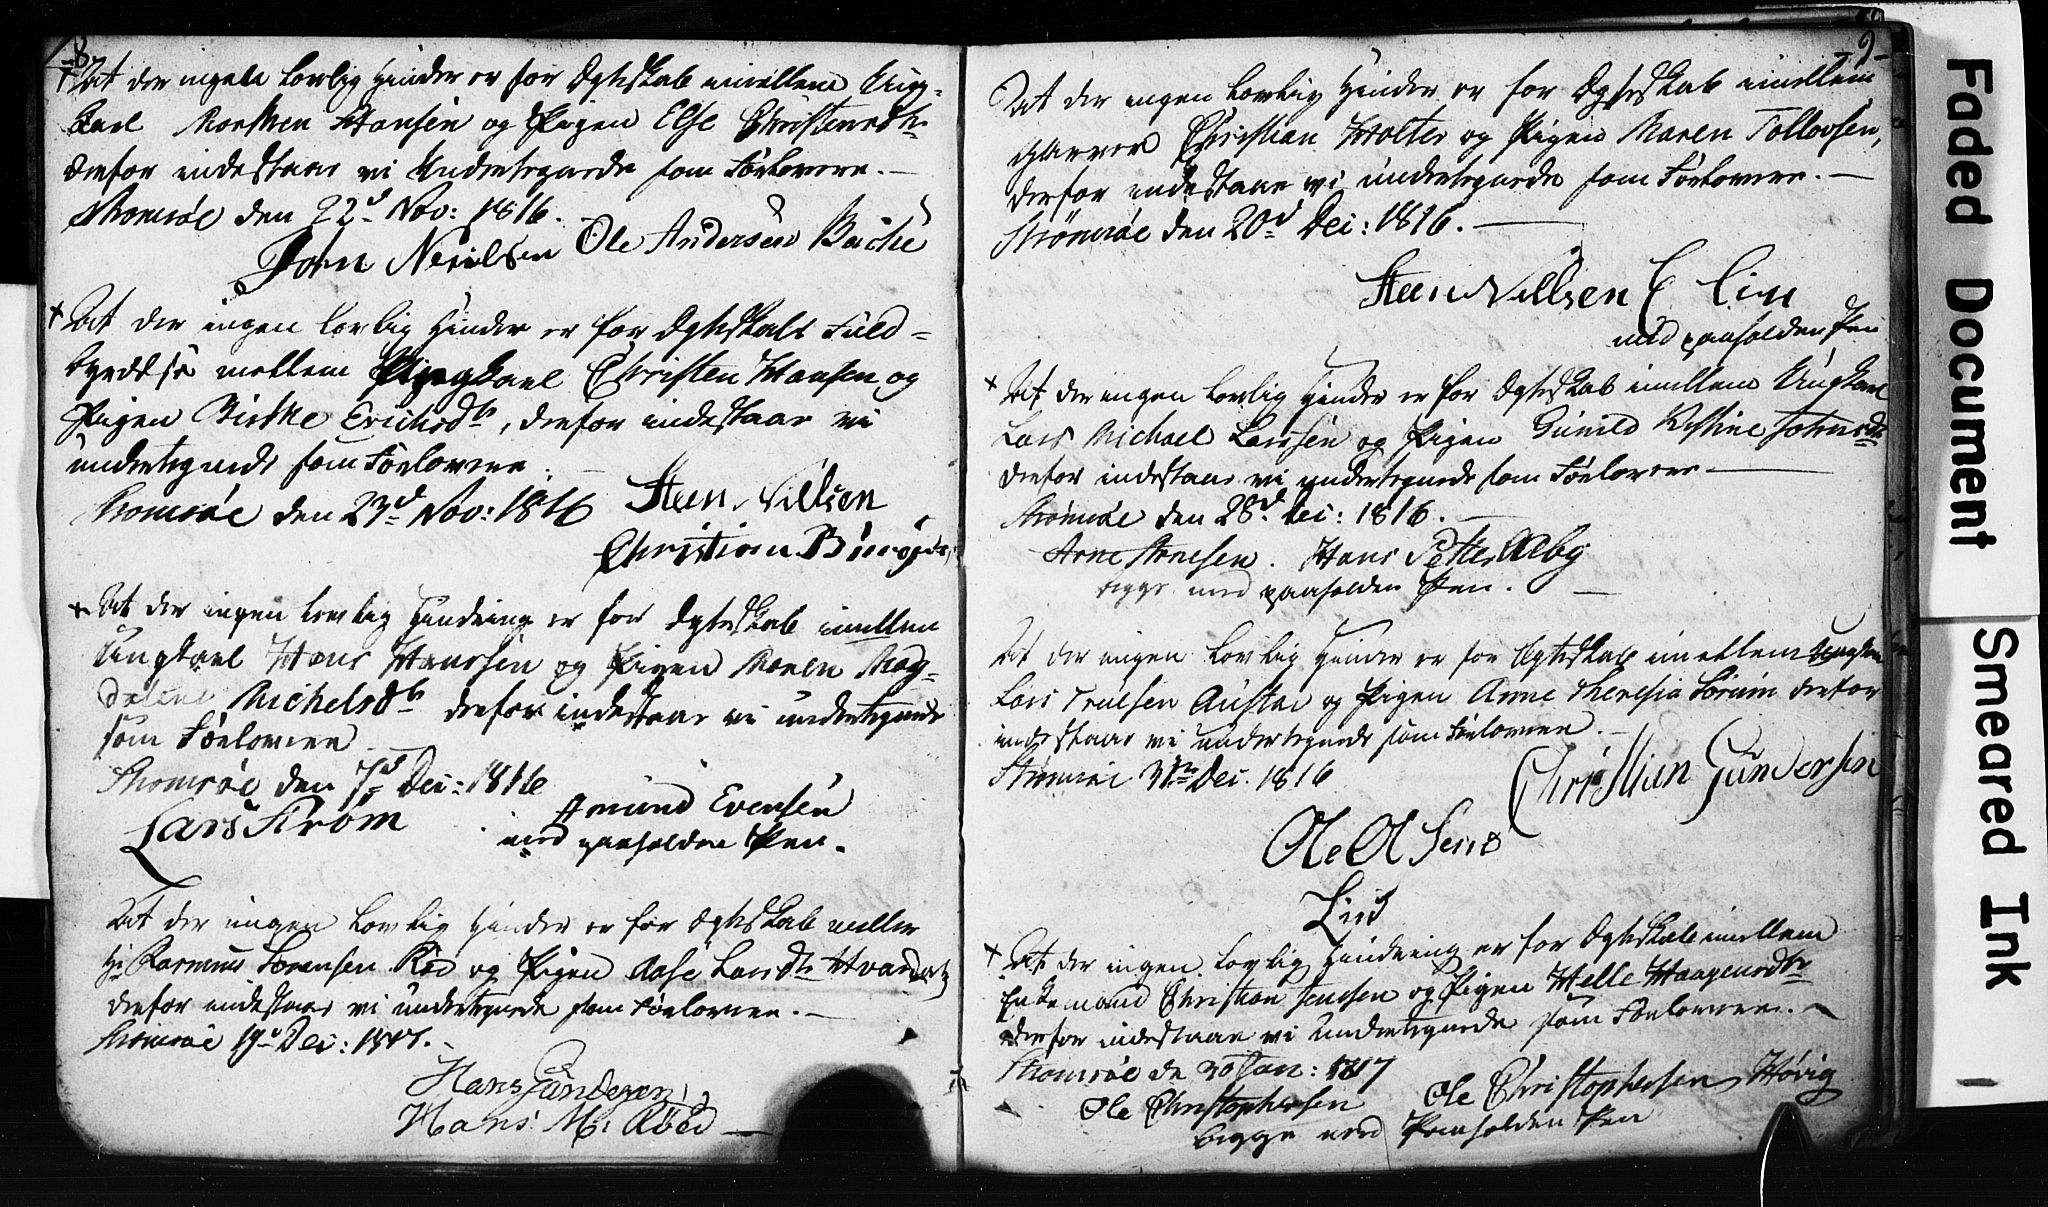 8
At der ingen Lovlig Hinder er for Ægteskab imellem Ung-
karl Morthen Hansen og Pigen Else Christensdtr
derfor indestaar vi Undertegnede som Forlovere. —
Strømsøe den 22d Nov: 1816.
Jørn Nerilsen Ole Andersen Bache
+ At der ingen Lovlig Hinder er for Ægteskabs Fuld-
byrdelse mellem Ungkarl Christen Hansen og
Pigen Birthe Erichsdtr, derfor indestaar vi
undertegnede som Forlovere. —
Strømsøe den 23d Nov: 1816 Steen Nillsen
Christian
+ At der ingen Lovlig Hindring er for Ægteskab imellem
Ungkarl Hans Hanssen og Pigen Maren Mag-
dalene Michelsdtr derfor indestaar vi undertegnede
som Forlovere
Strømsøe den 7d Dec: 1816
Lars Krøm Amund Evensen
med paaholden Pen.
At der ingen Lovlig Hinder er for Ægteskab mellem
Hr Rasmus Sørensen Røed og Pigen Aase Larsdtr
derfor indestaar vi undertegnede som Forlovere. —
Strømsøe 19d Dec:
Hans Gundersen
Hans M. Røed —
9
At der ingen Lovlig Hinder er for Ægteskab imellem
Garver Christian Holter og Pigen Maren Tollovsen,
derfor indestaar vi undertegnede som Forlovere. —
Strømsøe den 20d Dec: 1816. —
Steen Nillsen E Lien
med paaholden Pen
+ At der ingen Lovlig Hinder er for Ægteskab imellem Ungkarl
Lars Michael Larssen og Pigen Gunild Kistine Johnsdtr
derfor indestaar vi undertegnede som Forlovere —
Strømsøe den 28d Dec: 1816. —
Arne Arnesen. Hans Petter Alby
begge med paaholden Pen. —
At der ingen Lovlig Hinder er for Ægteskab imellem
Lars Truelsen Austad og Pigen Anne Theresia Sørum derfor
indestaar vi undertegnede som Forlovere. —
Strømsøe 31te Dec. 1816
Christian Gundersen
Ole Olsen
Lind
+ At der ingen Lovlig Hindring er for Ægteskab imellem
Enkemand Christian Jensen og Pigen Helle Haagensdtr
derfor indestaar vi undertegnede som Forlovere. —
Strømsøe de 30 Jan: 1817
Ole Christophersen Ole Christophersen Høvig
begge med Paaholden Pen
Faded Document
Smeared Ink